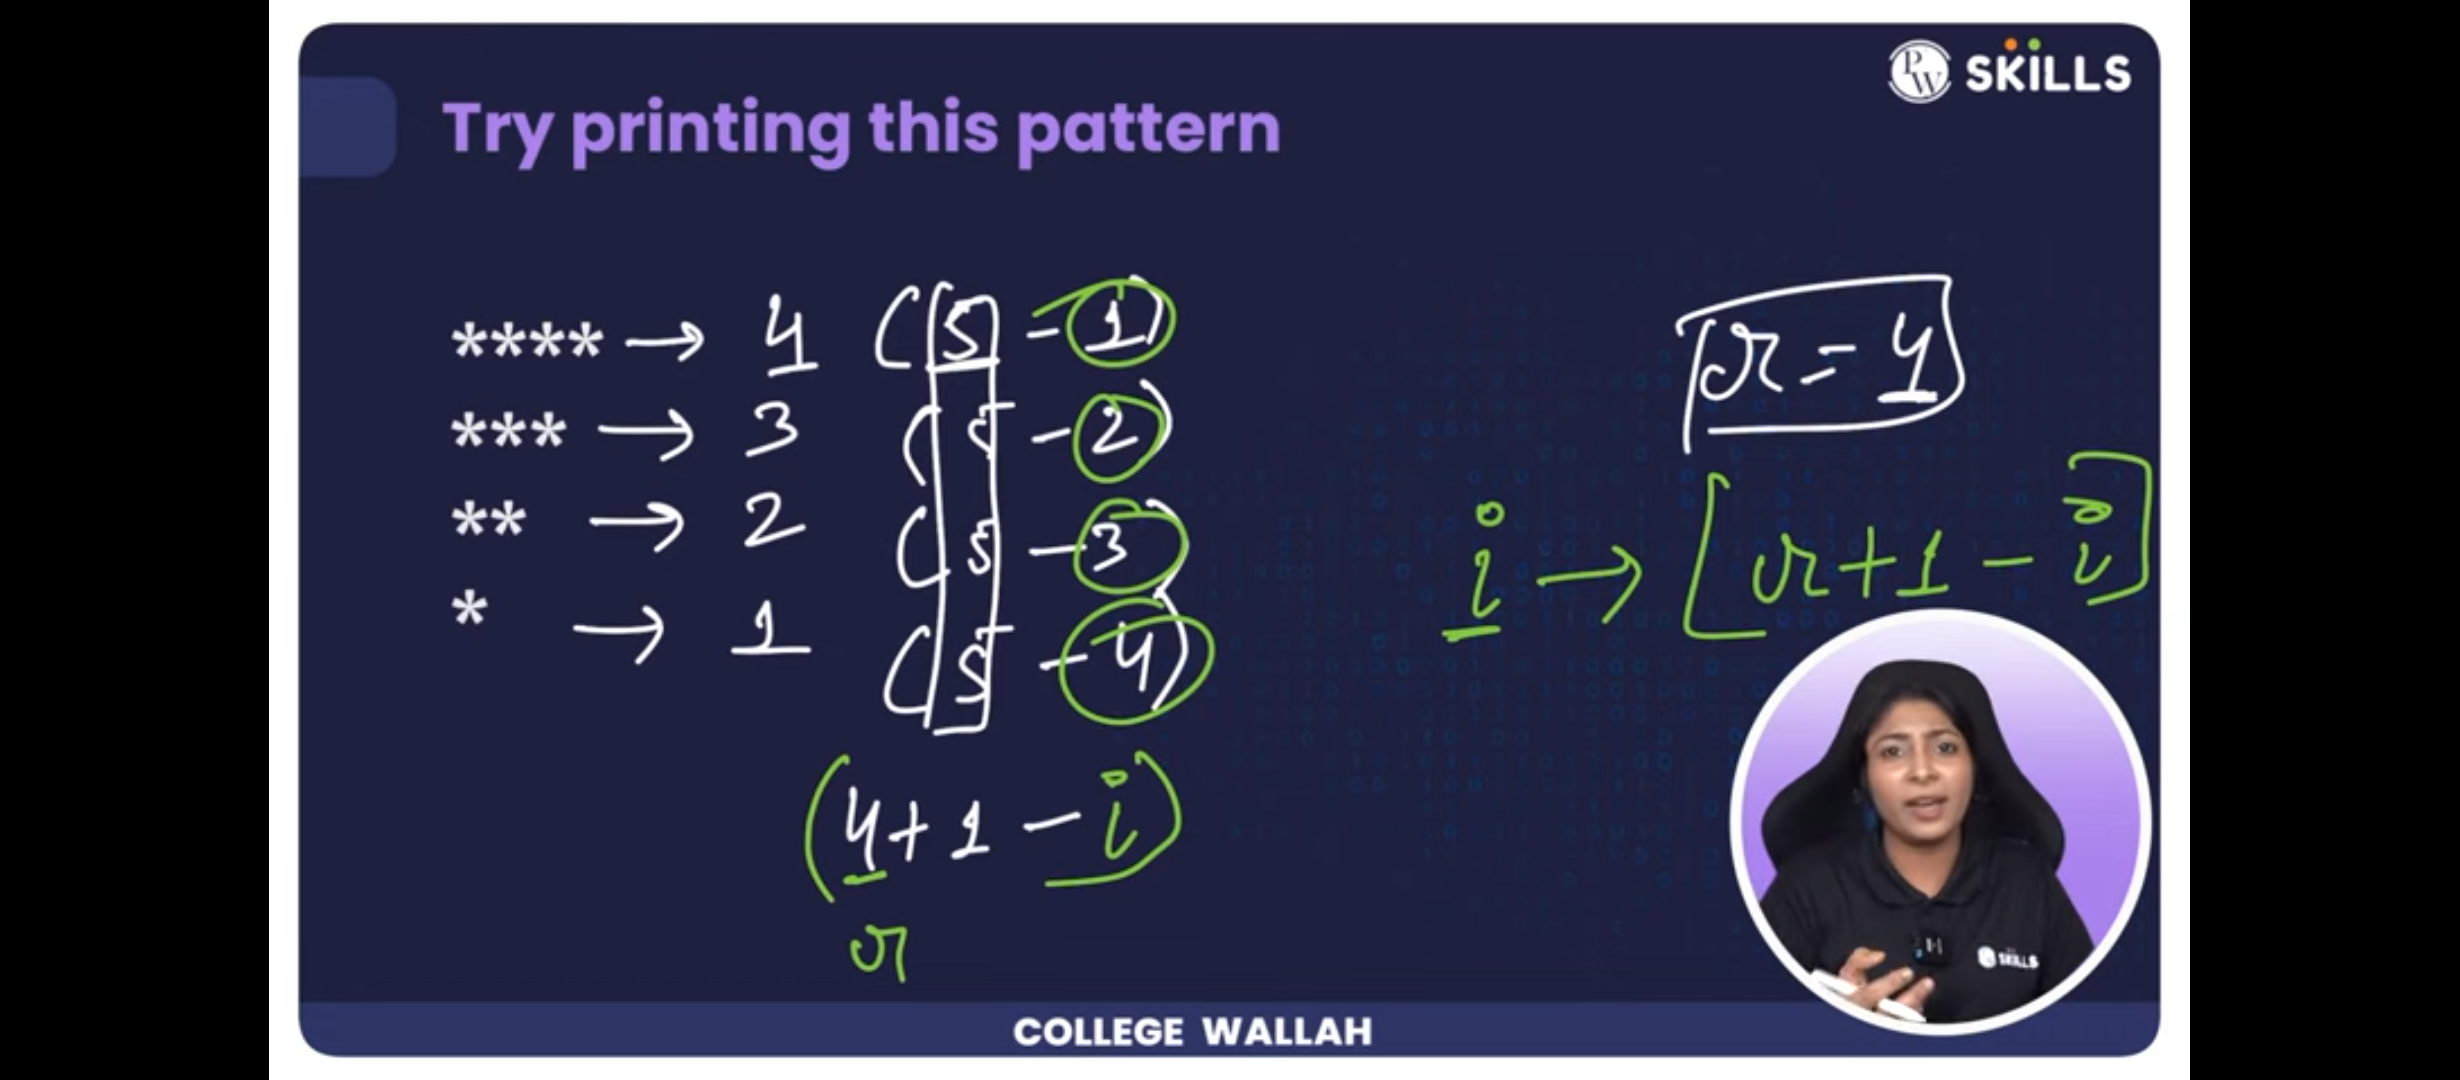 PW SKILLS
Try printing this pattern
**** → 4 (5 - 1)
*** → 3 (5 - 2)
** → 2 (5 - 3)
* → 1 (5 - 4)
r = 4
i → [r+1-i]
(4+1-i)
r
SKILLS
COLLEGE WALLAH